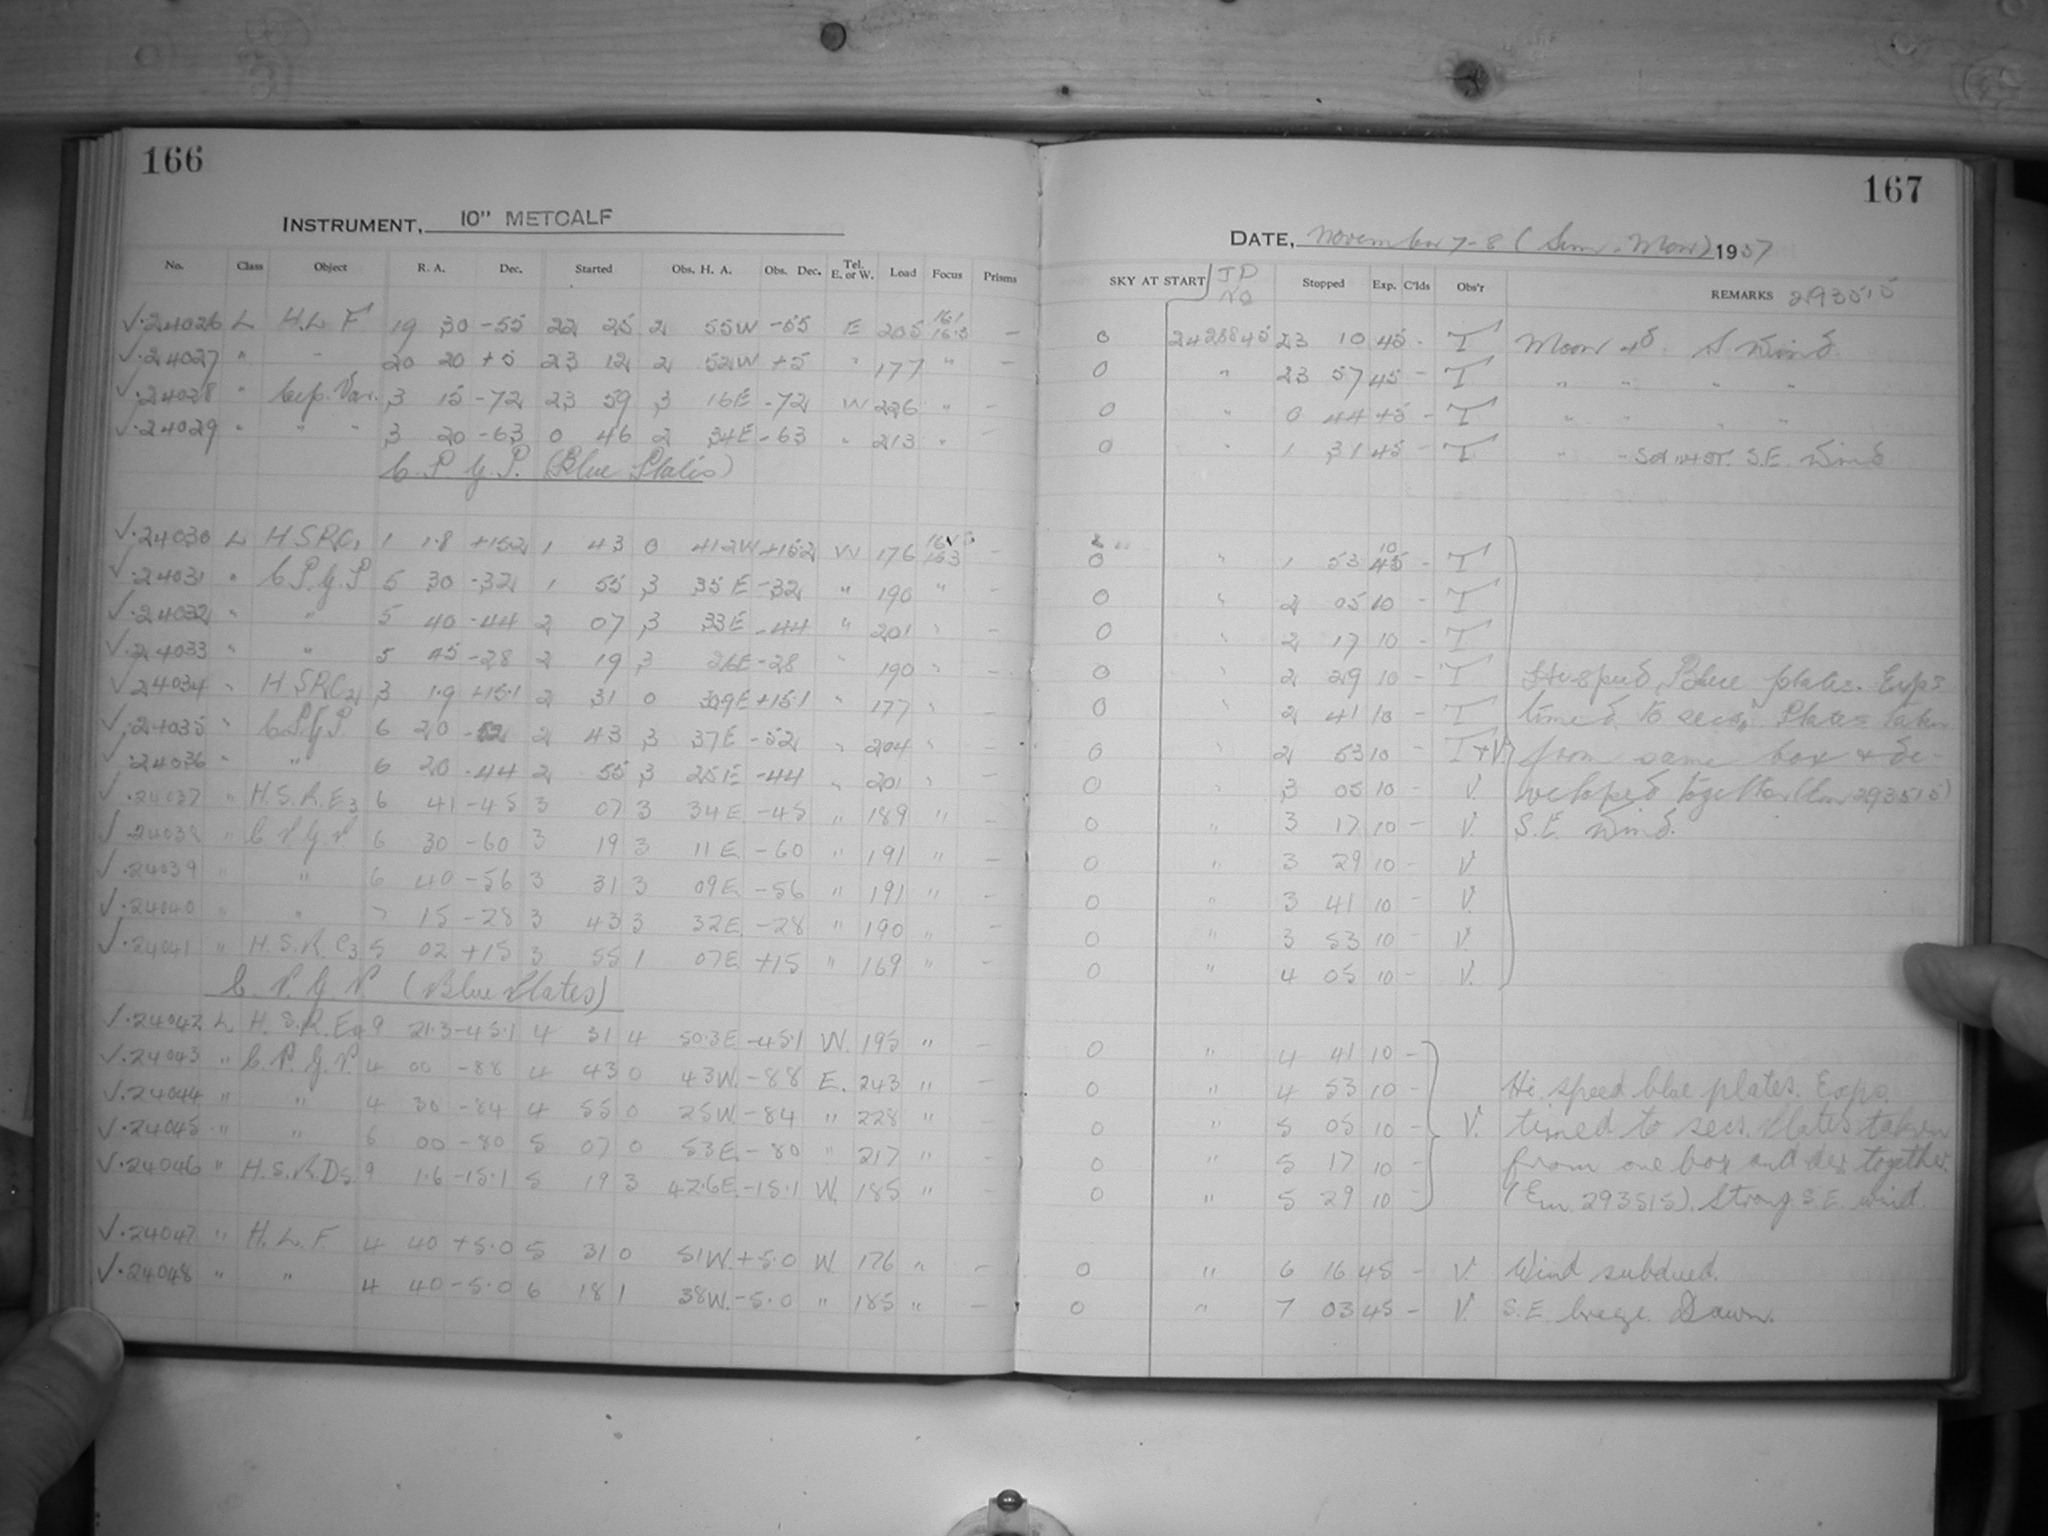 166
INSTRUMENT, 10" METCALF
No. Class Object R. A. Dec. Started Obs. H. A. Obs. Dec. Tel. E. or W. Load Focus Prisms
√·24026 L H.L F 19 30 -55 22 25 2 55W -55 E 205 161 163 —
√·24027 " " 20 20 +5 23 12 2 52W +5 " 177 " —
√·24028 " Cep. Var. 3 15 -72 23 59 3 16E -72 W 226 " —
√·24029 " " " 3 20 -63 0 46 2 34E -63 " 213 " —
C P G P. (Blue Plates)
√·24030 L H S R C1 1 1·8 +15·2 1 43 0 41·2W +15·2 W 176 163 —
√·24031 " C P. G. P 5 30 -32 1 55 3 35 E -32 " 190 " —
√·24032 " " 5 40 -44 2 07 3 33E -44 " 201 " —
√·24033 " " 5 45 -28 2 19 3 26E -28 " 190 " —
√24034 " H S R C2 3 1·9 +15·1 2 31 0 30·9E +15·1 " 177 " —
√·24035 " C P G P. 6 20 -52 2 43 3 37E -52 " 204 " —
√·24036 " " 6 20 -44 2 55 3 25E -44 " 201 " —
√·24037 " H.S.R.E3 6 41 -45 3 07 3 34E -45 " 189 " —
√·24038 " C P G P 6 30 -60 3 19 3 11E -60 " 191 " —
√·24039 " " 6 40 -56 3 31 3 09E -56 " 191 " —
√·24040 " " 7 15 -28 3 43 3 32E -28 " 190 " —
√·24041 " H.S.R. C3 5 02 +15 3 55 1 07E +15 " 169 " —
C. P. G. P. (Blue Plates)
√·24042 L H. S. R. E4 9 21·3 -45·1 4 31 4 50·3E -45·1 W. 195 " —
√·24043 " C. P. G. P. 4 00 -88 4 43 0 43W. -88 E. 243 " —
√·24044 " " 4 30 -84 4 55 0 25W. -84 " 228 " —
√·24045 " " 6 00 -80 5 07 0 53E. -80 " 217 " —
√·24046 " H.S.R.D5 9 1·6 -15·1 5 19 3 42·6E. -15·1 W. 185 " —
√·24047 " H. L. F. 4 40 +5·0 5 31 0 51W. +5·0 W. 176 " —
√·24048 " " 4 40 -5·0 6 18 1 38W. -5·0 " 185 " —
167
DATE, November 7-8 (Sun.-Mon) 1937
SKY AT START JD NO Stopped Exp. C'lds Obs'r REMARKS 293515
0 2428845 23 10 45 - T Moon S Wind.
0 " 23 57 45 - T " " " "
0 " 0 44 45 - T " " " "
0 " 1 31 45 - T " S.E. Wind
0 " 1 53 10 45 - T
0 " 2 05 10 - T
0 " 2 17 10 - T
0 " 2 29 10 - T Hi-speed Blue plates. Exps
0 " 2 41 10 - T timed to secs. Plates taken
0 " 2 53 10 - T+V from same box & de-
0 " 3 05 10 - V. veloped together (Em 293515)
0 " 3 17 10 - V. S.E. Wind.
0 " 3 29 10 - V
0 " 3 41 10 - V.
0 " 3 53 10 - V.
0 " 4 05 10 - V.
0 " 4 41 10 -
0 " 4 53 10 - Hi speed blue plates. Exps.
0 " 5 05 10 - V. timed to secs. Plates taken
0 " 5 17 10 - from one box and dev together.
0 " 5 29 10 - (Em. 293515). Strong S.E. wind.
0 " 6 16 45 - V. Wind subdued.
0 " 7 03 45 - V. S.E. breeze. Dawn.